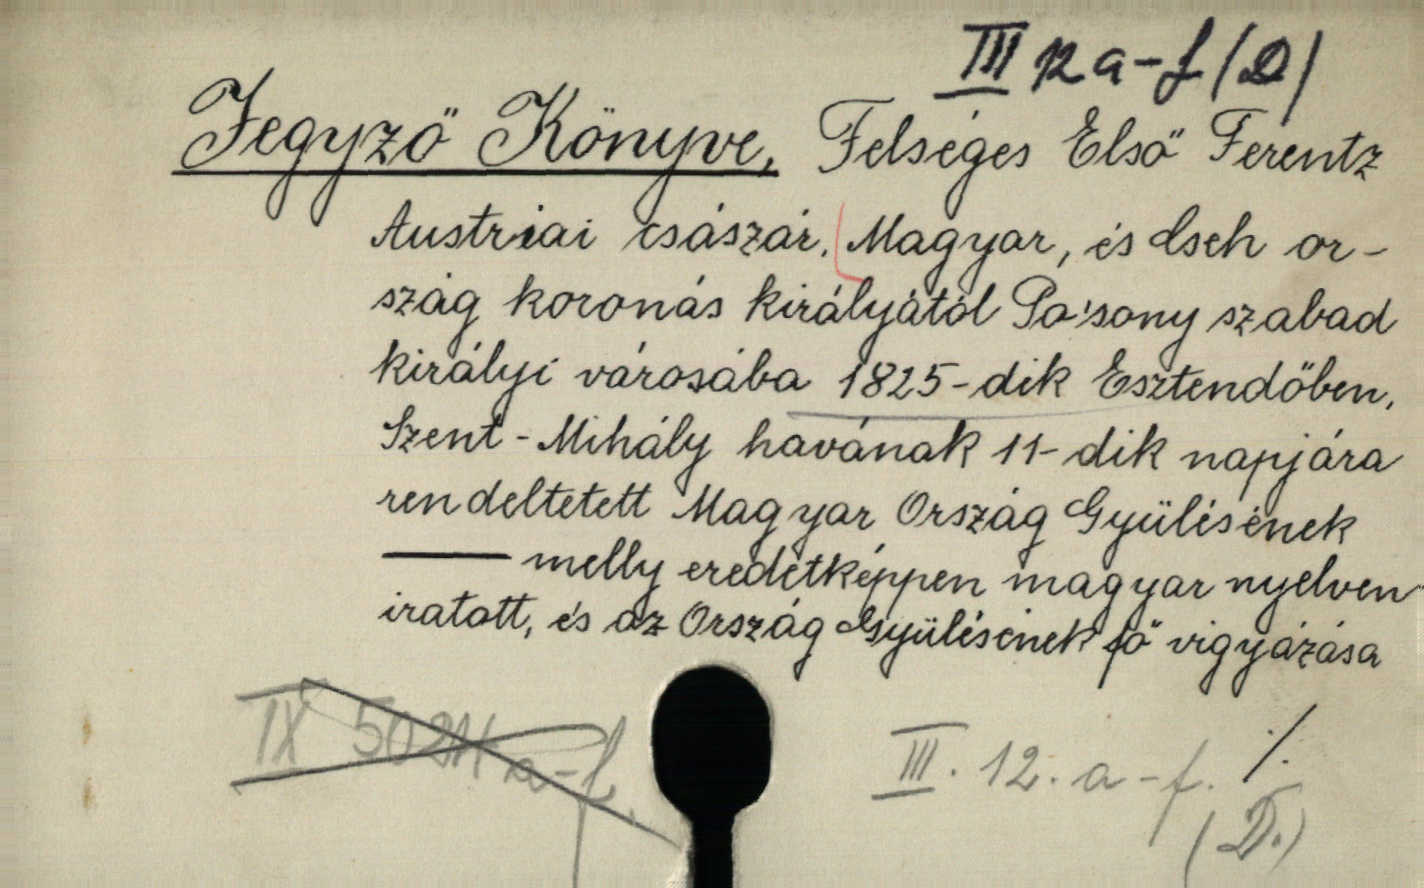 III 12 a-f (D)
Jegyző Könyve, Felséges Első Ferentz
Austriai császár, Magyar, és Cseh or-
szág koronás királyától Po'sony szabad
királyi városába 1825-dik Esztendőben,
Szent-Mihály havának 11-dik napjára
rendeltetett Magyar Ország Gyülésének
— melly eredetképpen magyar nyelven
iratott, és az Ország Gyülésének fő vigyázása
IX a-f.
III. 12. a-f. /.
(D.)